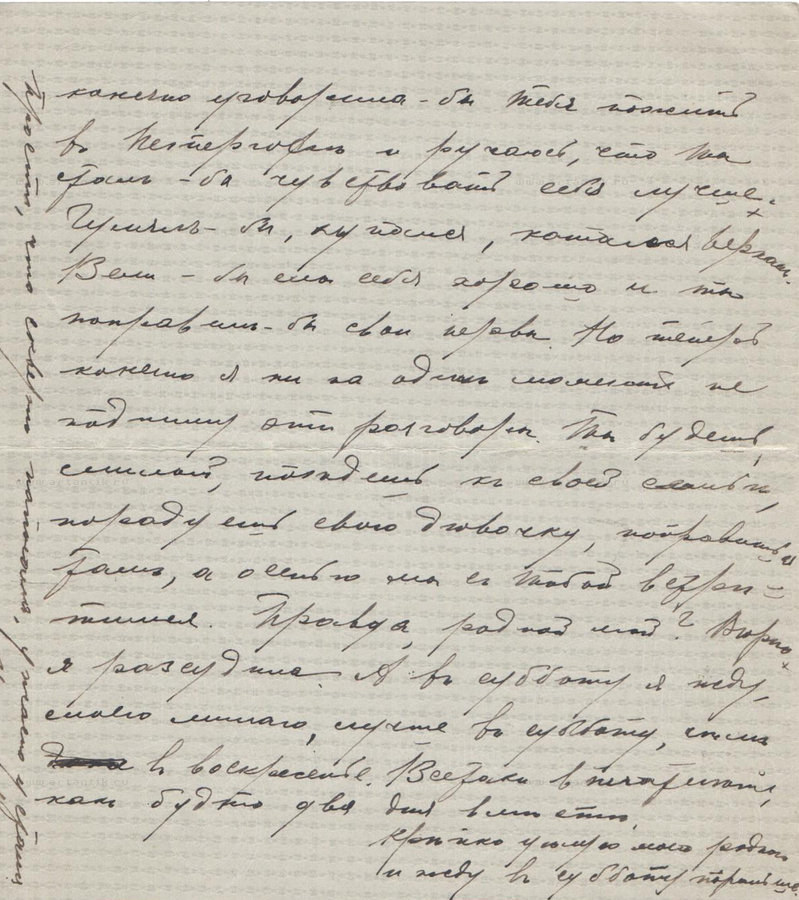 конечно уговорила-бы тебя пожить
въ Петергофѣ и ручаюсь, что ты
сталъ-бы чувствовать себя лучше.
Гулялъ-бы, купался, катался верхом.
Велъ-бы себя хорошо и ты
поправилъ-бы свои нервы. Но теперь
конечно я ни на одинъ моментъ не
подниму эти разговоры. Ты будешь
поѣдешь къ своей семьѣ,
порадуешь свою дѣвочку, поправишься
тамъ, а осенью мы съ тобой встрѣ-
тимся. Правда, родной мой? Вѣрно
я разсудила. А въ субботу я жду,
своего милаго, лучше въ субботу, чѣмъ
въ воскресенье. Всетаки впечатление,
какъ будто два дня вмѣстѣ.
Крѣпко цѣлую моего родного
и жду въ субботу пораньше.
Прости, что скверно написала, ужасно устала